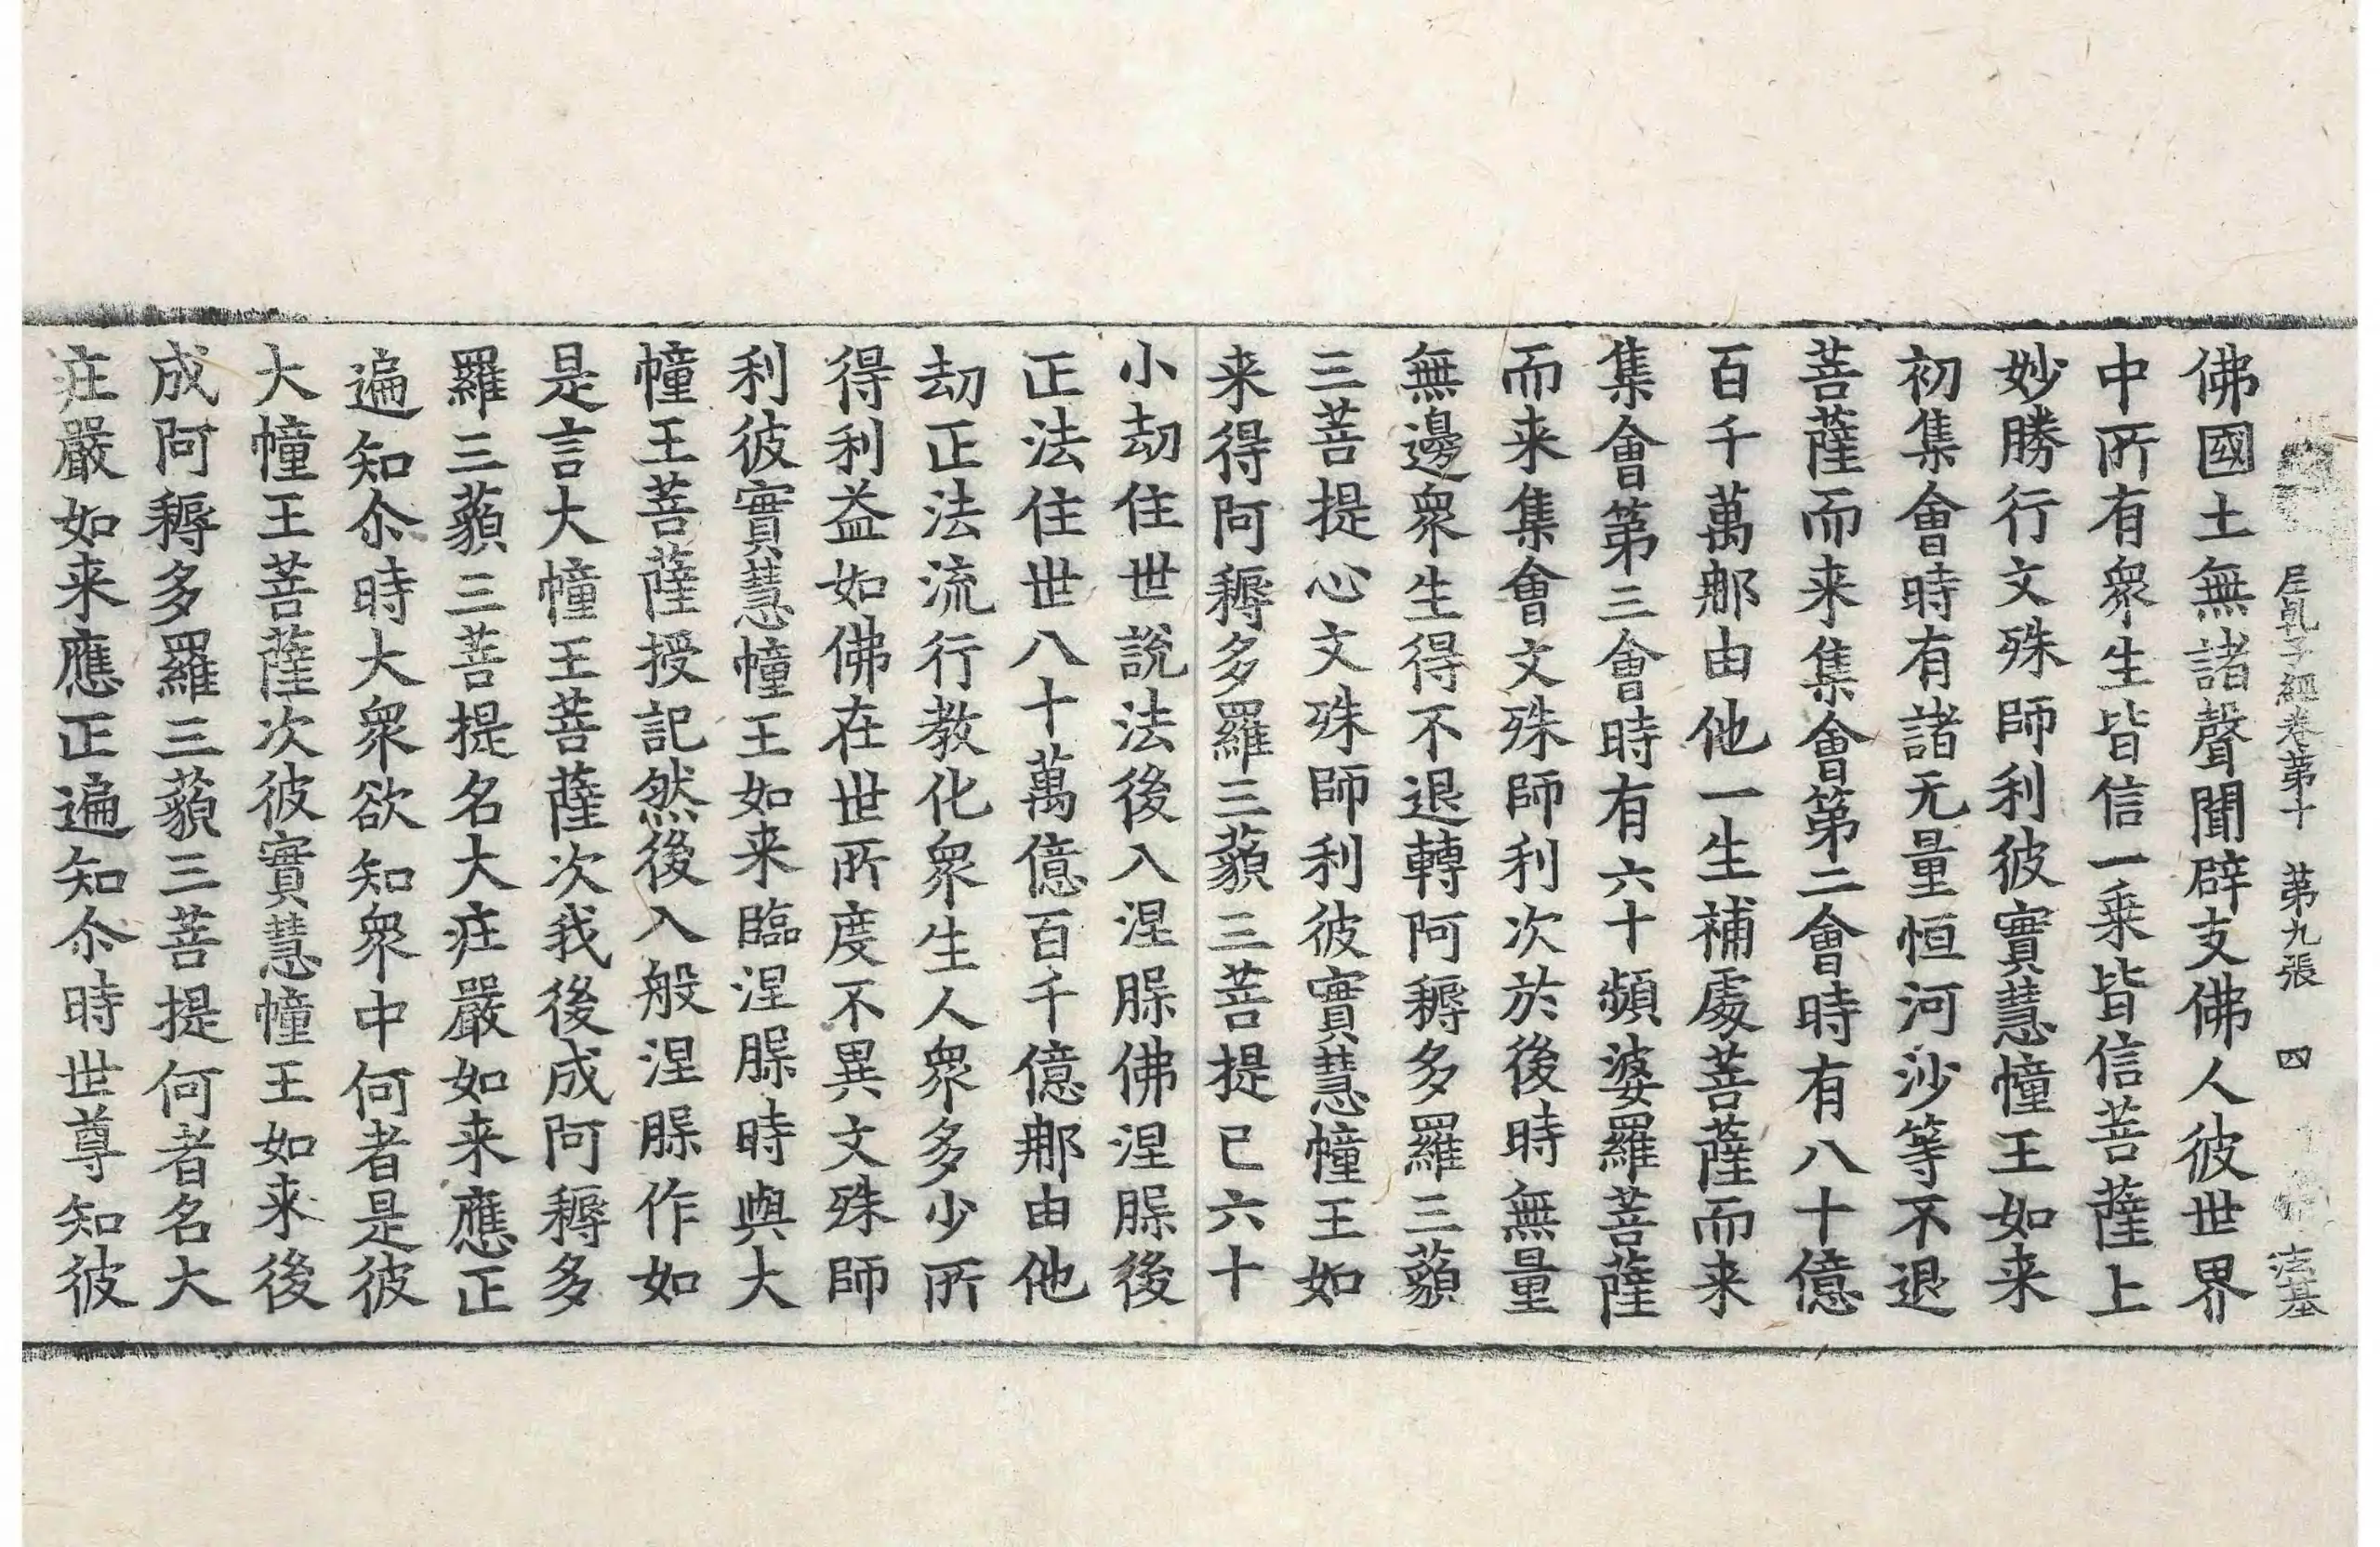 尼乹子經卷第十　第九張　四　法基
佛國土無諸聲聞辟支佛人彼世界
中所有衆生皆信一乗皆信菩薩上
妙勝行文殊師利彼實慧幢王如来
初集會時有諸无量恒河沙等不退
菩薩而来集會第二會時有八十億
百千萬𨚗由他一生補處菩薩而来
集會第三會時有六十頻婆羅菩薩
而来集會文殊師利次於後時無量
無邊衆生得不退轉阿耨多羅三藐
三菩提心文殊師利彼實慧幢王如
来得阿耨多羅三藐三菩提已六十
小劫住世說法後入涅槃佛涅槃後
正法住世八十萬億百千億𨚗由他
劫正法流行教化衆生人衆多少所
得利益如佛在世所度不異文殊師
利彼實慧幢王如来臨涅槃時與大
幢王菩薩授記然後入般涅槃作如
是言大幢王菩薩次我後成阿耨多
羅三藐三菩提名大庄嚴如来應正
遍知尒時大衆欲知衆中何者是彼
大幢王菩薩次彼實慧幢王如来後
成阿耨多羅三藐三菩提何者名大
庄嚴如来應正遍知尒時世尊知彼